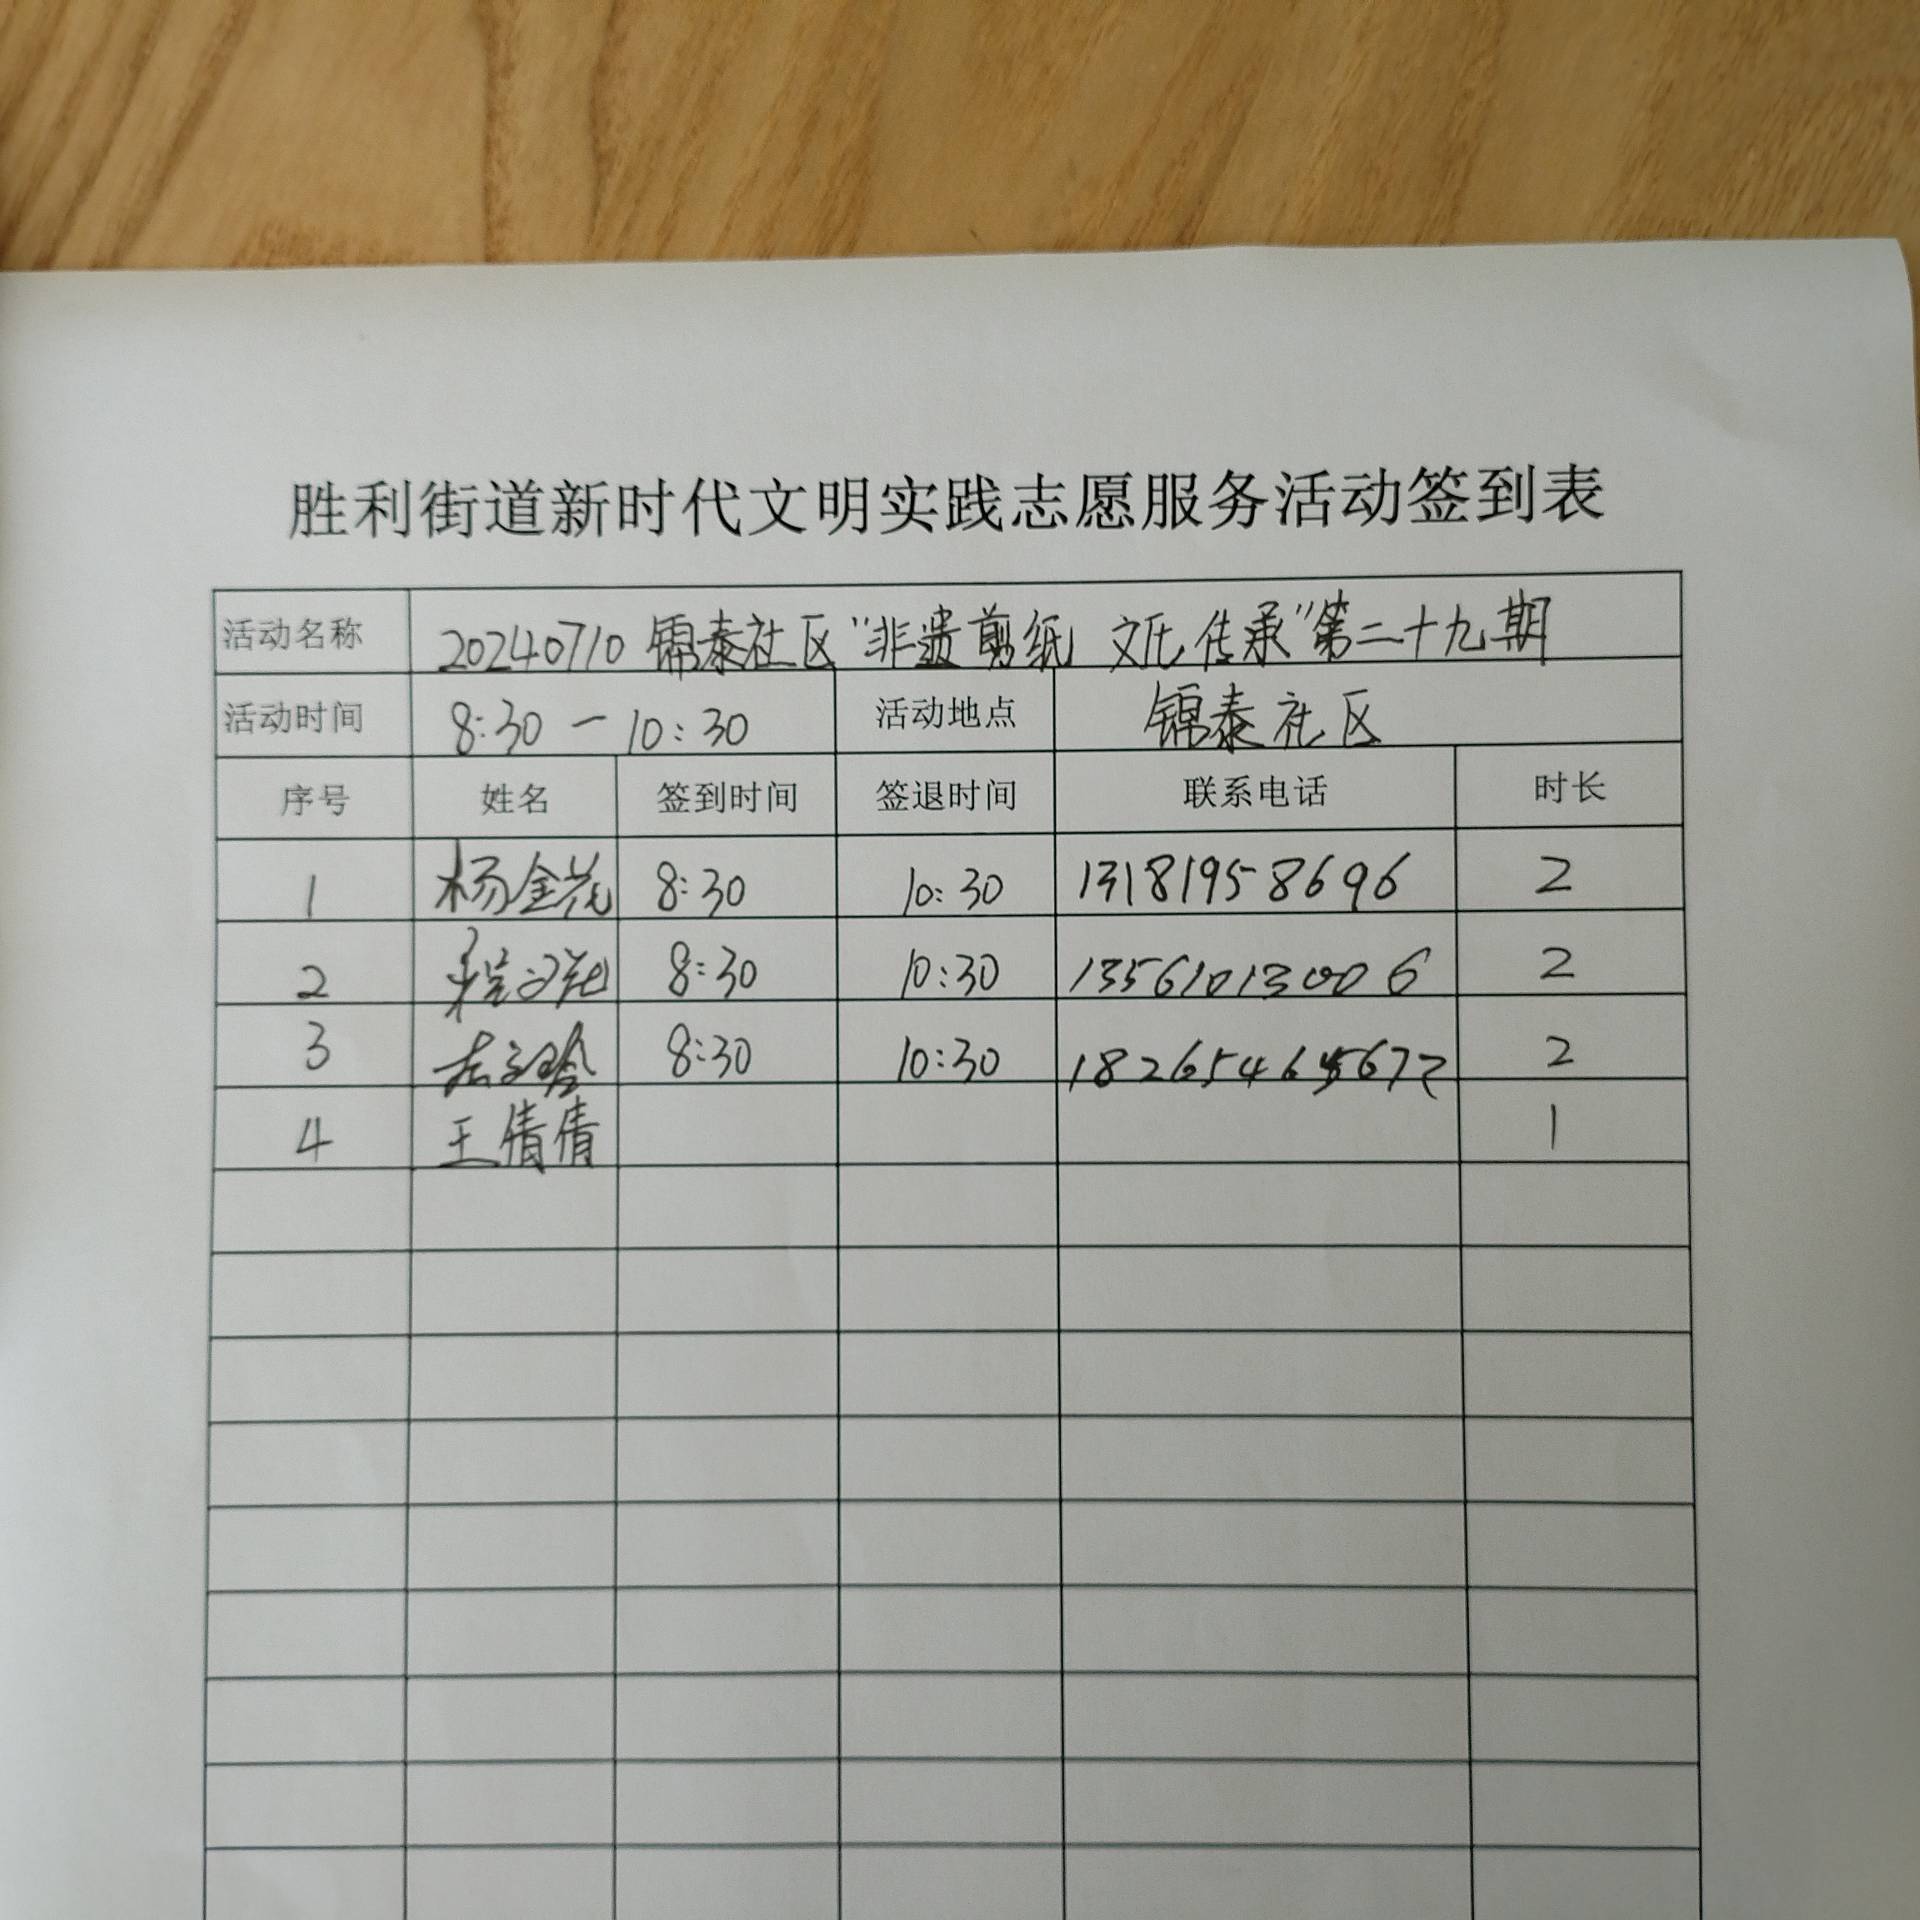 胜利街道新时代文明实践志愿服务活动签到表
活动名称 20240710 锦泰社区"非遗剪纸 文化传承"第二十九期
活动时间 8:30 — 10:30 活动地点 锦泰社区
序号 姓名 签到时间 签退时间 联系电话 时长
1 杨金花 8:30 10:30 13181958696 2
2 8:30 10:30 13561013006 2
3 8:30 10:30 2
4 王倩倩 1